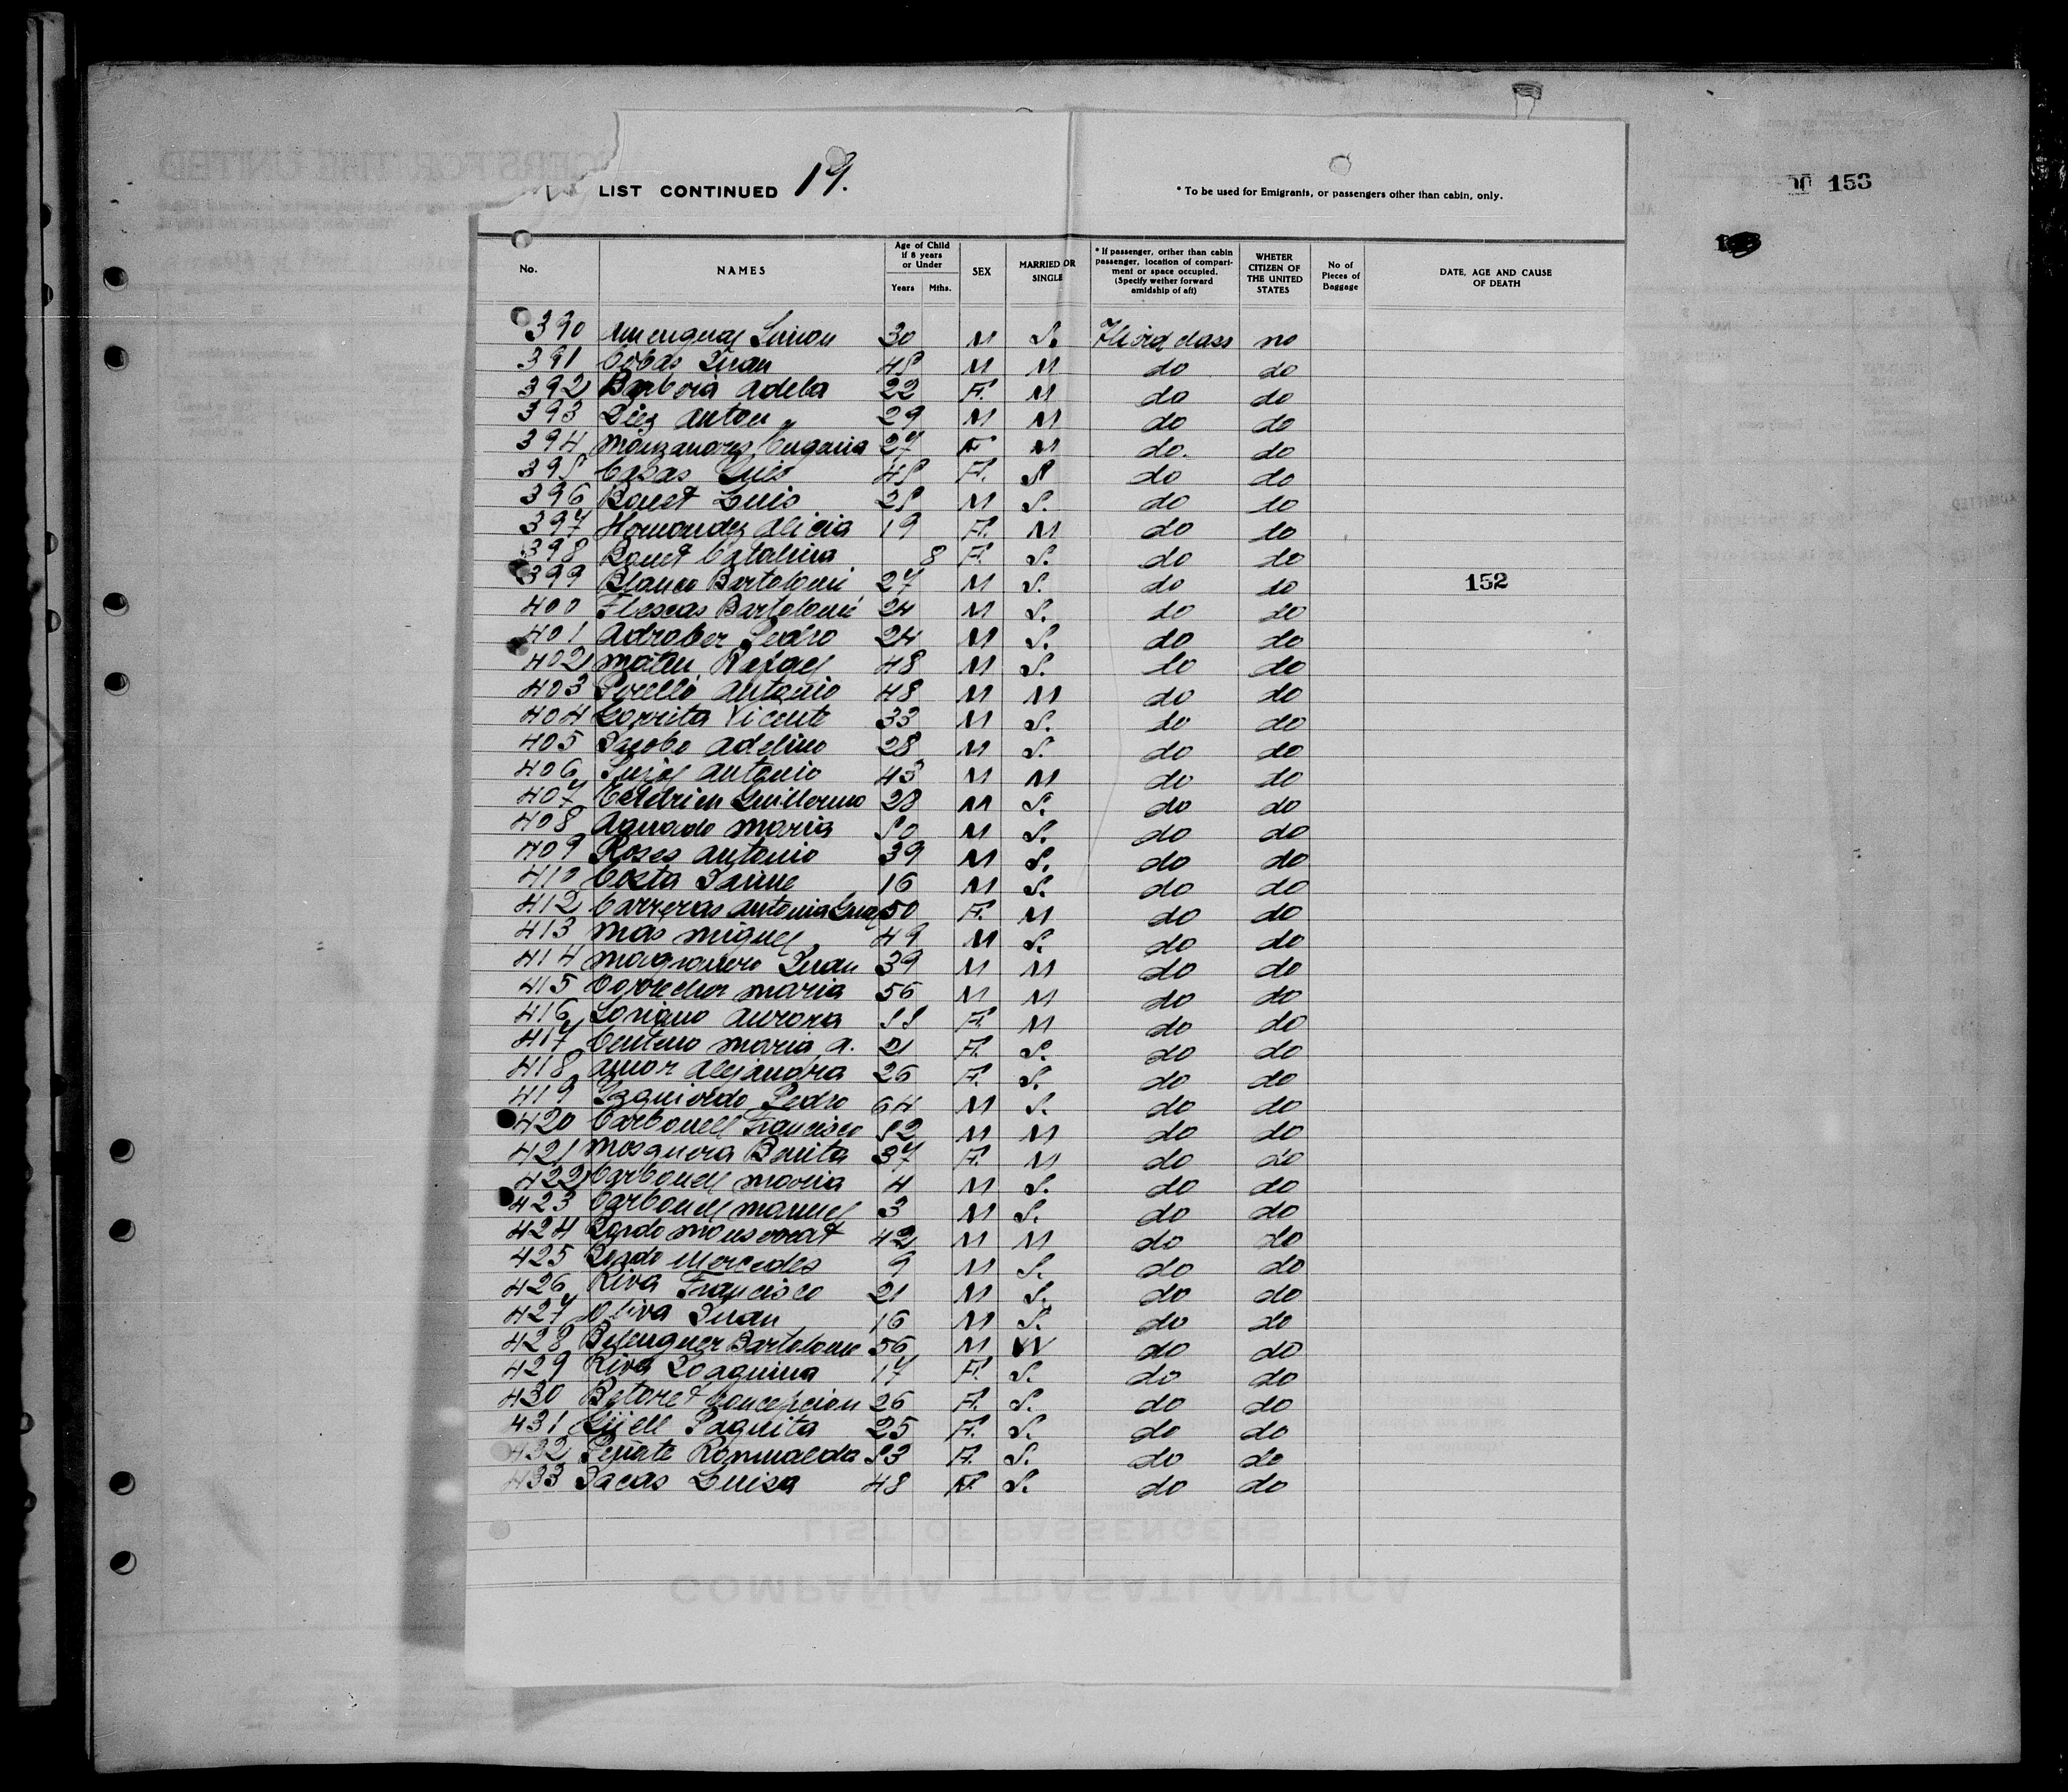 LIST CONTINUED 19.
* To be used for Emigrants, or passengers other than cabin, only.
00 153
No. NAMES Age of Child if 8 years or Under Years Mths. SEX MARRIED OR SINGLE * If passenger, orither than cabin passenger, location of compartiment or space occupied. (Specify wether forward amidship of aft) WHETER CITIZEN OF THE UNITED STATES No of Pieces of Baggage DATE, AGE AND CAUSE OF DEATH
390 Amengual Simon 30 M S. Third class no
391 Cobas Juan 45 M M do do
392 Barboia Adela 22 F. M do do
393 Diez Anton 29 M M do do
394 Manzanares Eugenia 27 F M do. do
395 Casas Luis 45 F. S do do
396 Bauet Luis 25 M S. do do
397 Hernandez Alicia 19 F. M do do
398 Bauet Catalina 8 F. S. do do
399 Blanco Bartolomé 27 M S. do do 152
400 Flescas Bartolomé 24 M S. do do
401 Adrober Pedro 24 M S. do do
402 Mateu Rafael 48 M S. do do
403 Porelló Antonio 48 M M do do
404 Gorrita Vicente 33 M S. do do
405 Jacobo Adelino 28 M S. do do
406 Pujol Antonio 43 M M do do
407 Guillermo 28 M S. do do
408 Aguado Maria 50 M S. do do
409 Roses Antonio 39 M S. do do
410 Costa Jaime 16 M S. do do
412 Carreras Antonia 50 F. M do do
413 Mas Miguel 49 M S. do do
414 Magranero Juan 39 M M do do
415 Maria 56 M M do do
416 Soriano Aurora 55 F. M do do
417 Centeno Maria A. 21 F. S. do do
418 Amor Alejandra 26 F. S. do do
419 Izquierdo Pedro 64 M S. do do
420 Carbonell Francisco 52 M M do do
421 Mosquera Benita 37 F. M do do
422 Carbonell Maria 4 M S. do do
423 Carbonell Manuel 3 M S. do do
424 Pardo Monserrat 42 M M do do
425 Pardo Mercedes 9 M S. do do
426 Riva Francisco 21 M S. do do
427 Oliva Juan 16 M S. do do
428 Belenguer Bartolome 56 M W do do
429 Riva Joaquina 17 F. S. do do
430 Betoret Concepcion 26 F. S. do do
431 Güell Paquita 25 F. S. do do
432 Peñate Romualda 53 F. S. do do
433 Sacas Luisa 48 F. S. do do